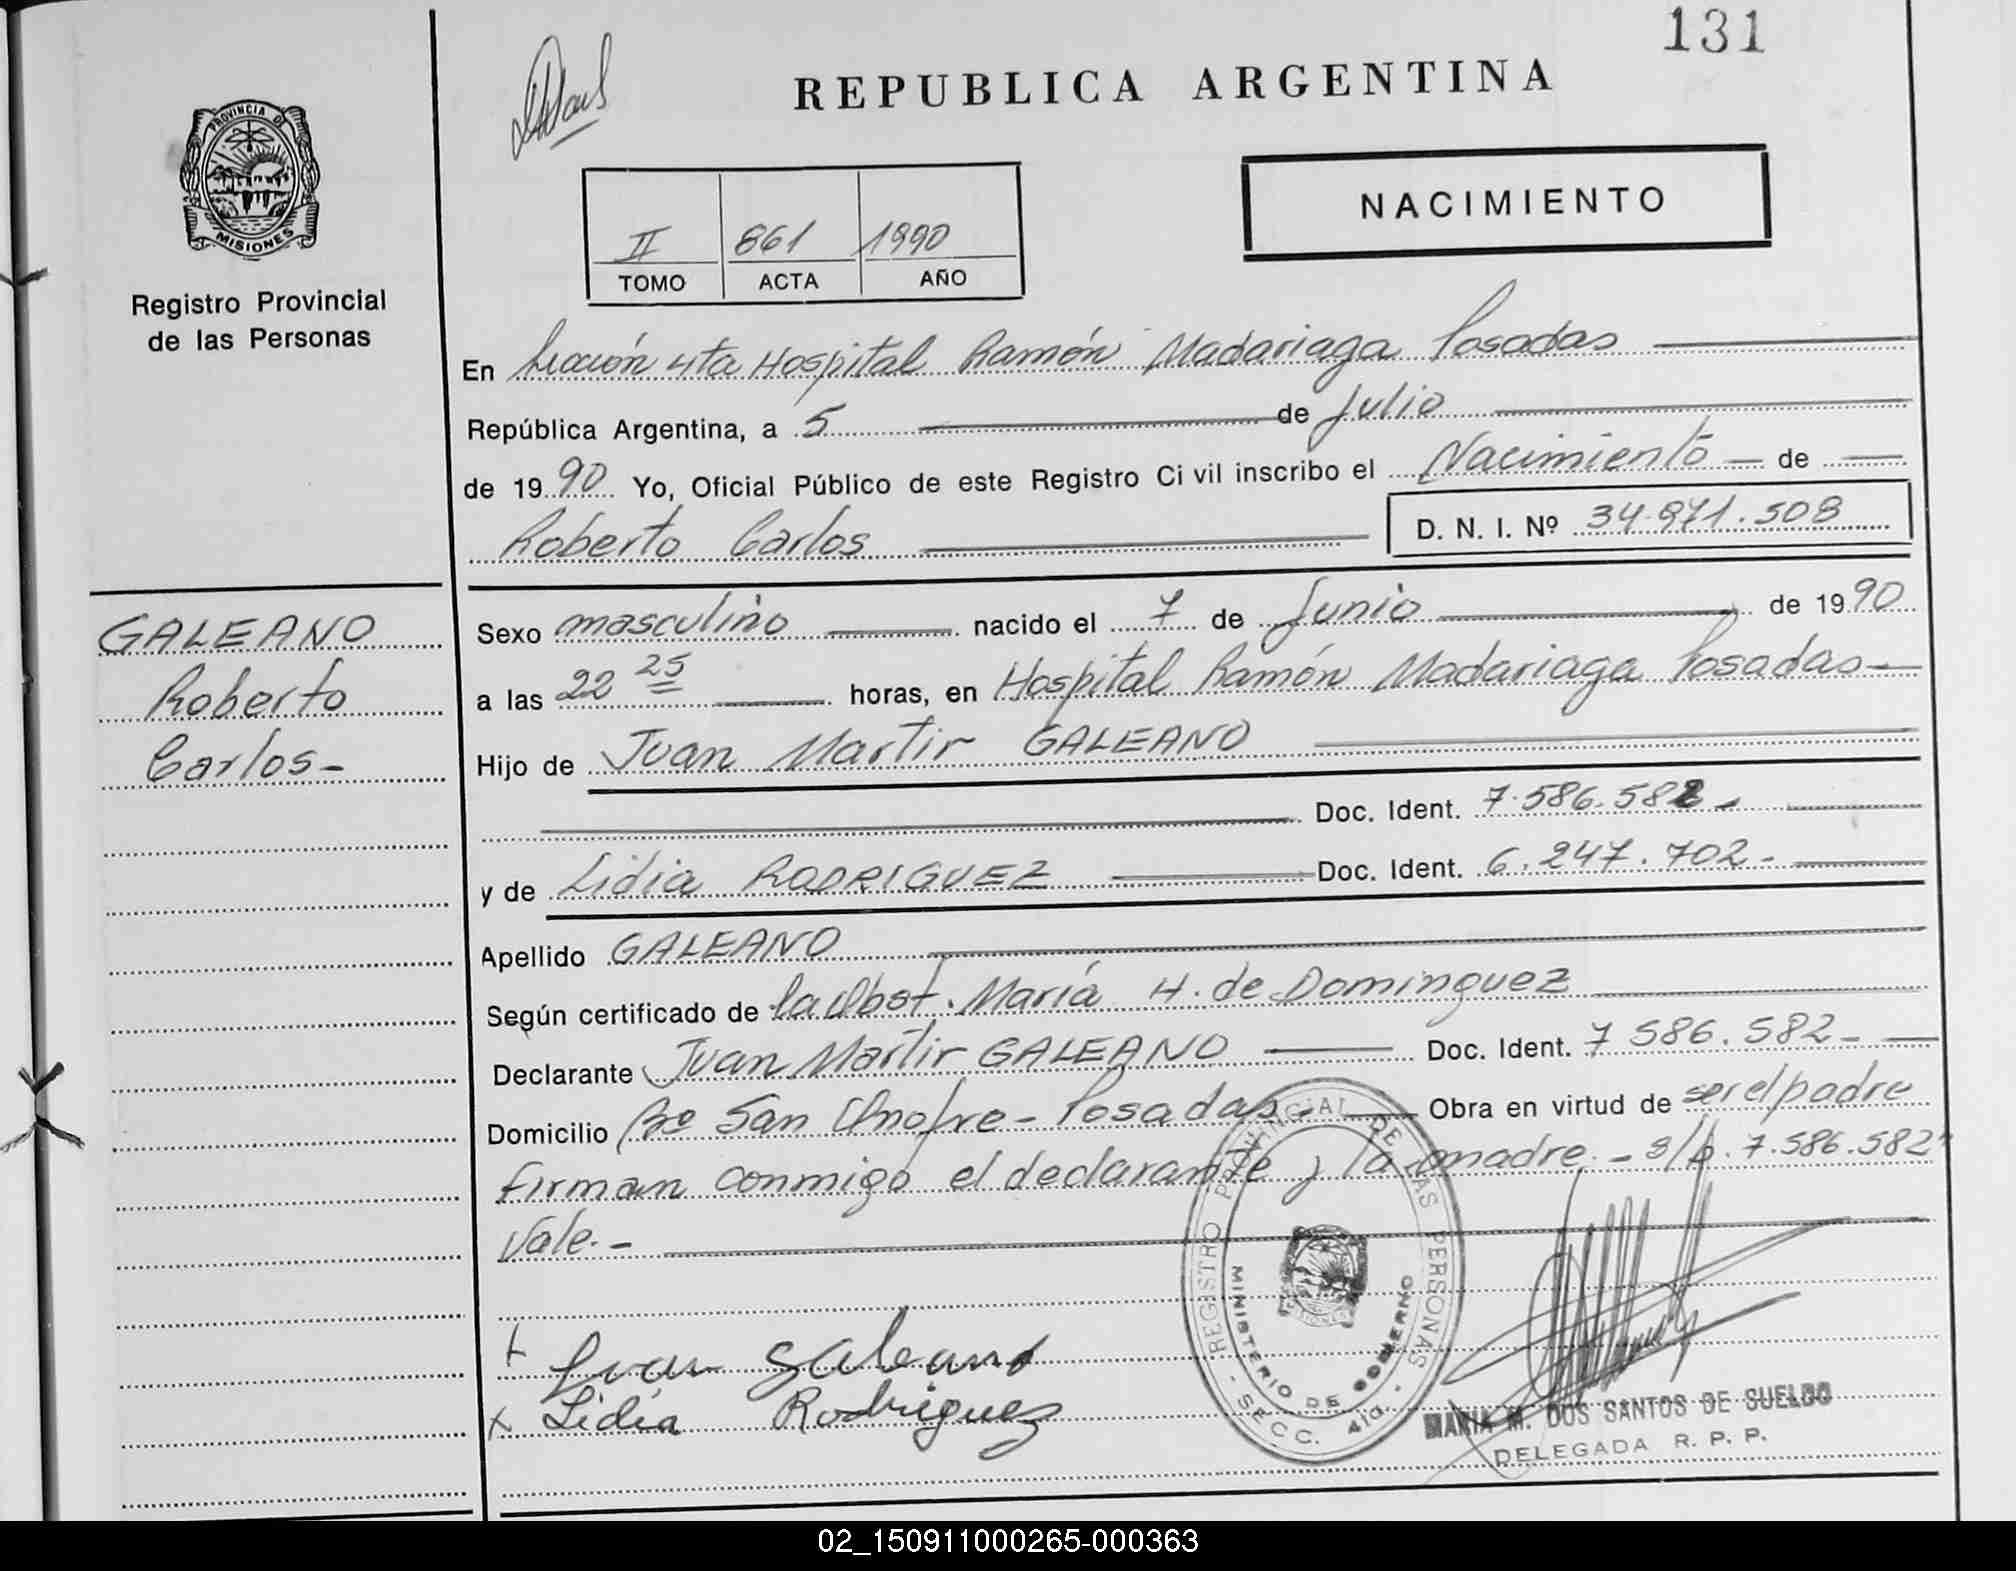 131
REPUBLICA ARGENTINA
PROVINCIA DE
MISIONES
Registro Provincial
de las Personas
NACIMIENTO
II 861 1990
TOMO ACTA AÑO
En Sección 4ta Hospital Ramón Madariaga Posadas
República Argentina, a 5 de Julio
de 1990 Yo, Oficial Público de este Registro Ci vil inscribo el Nacimiento de
Roberto Carlos D. N. I. Nº 34.971.508
GALEANO
Roberto
Carlos-
Sexo masculino nacido el 7 de Junio de 1990
a las 22 25 horas, en Hospital Ramón Madariaga Posadas-
Hijo de Juan Martir GALEANO
Doc. Ident. 7.586.582-
y de Lidia RODRIGUEZ Doc. Ident. 6.247.702-
Apellido GALEANO
Según certificado de la Obst. María H. de Dominguez
Declarante Juan Martir GALEANO Doc. Ident. 7 586.582-
Domicilio Bº San Onofre- Posadas- Obra en virtud de ser el padre
firman conmigo el declarante y la madre.- s/b. 7.586.582"
Vale.-
REGISTRO PROVINCIAL DE LAS PERSONAS
MINISTERIO DE GOBIERNO
- SECC. 4ta. -
+ Juan Galeano
x Lidia Rodriguez
MARIA M. DOS SANTOS DE SUELDO
DELEGADA R. P. P.
02_150911000265-000363